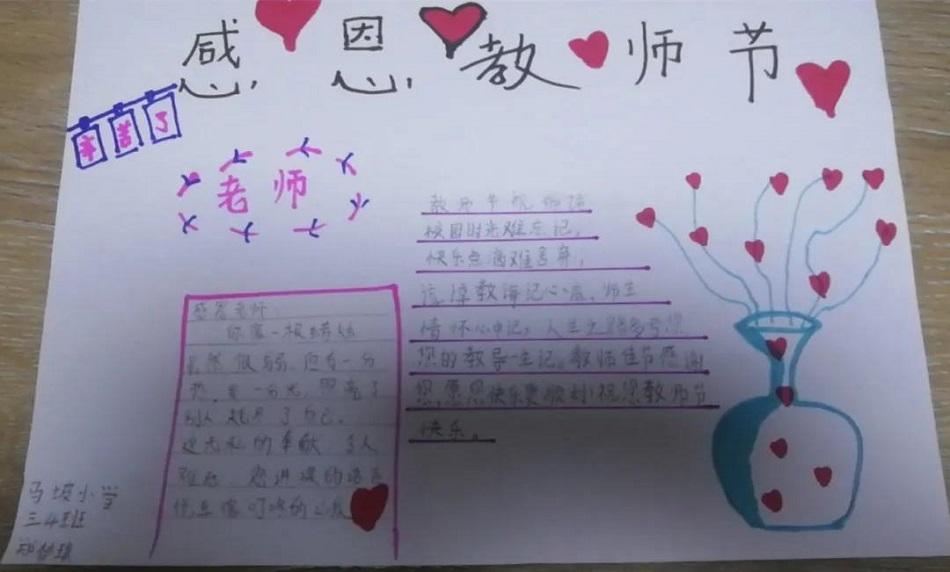 感恩教师节
辛苦了
老师
教师节
校园时光难忘记,
快乐点滴难舍弃,
谆谆教诲记心底、师生
情怀心中记,人生之路多亏您
您的教导一生记。教师佳节感谢
您,愿您快乐更顺利!祝您教师节
快乐。
感恩老师
你像一根蜡烛
虽然微弱,但有一分
热,发一分光,照亮了
别人,耗尽了自己。
这无私的奉献,令人
难忘。您讲课的语言
马坡小学
三4班